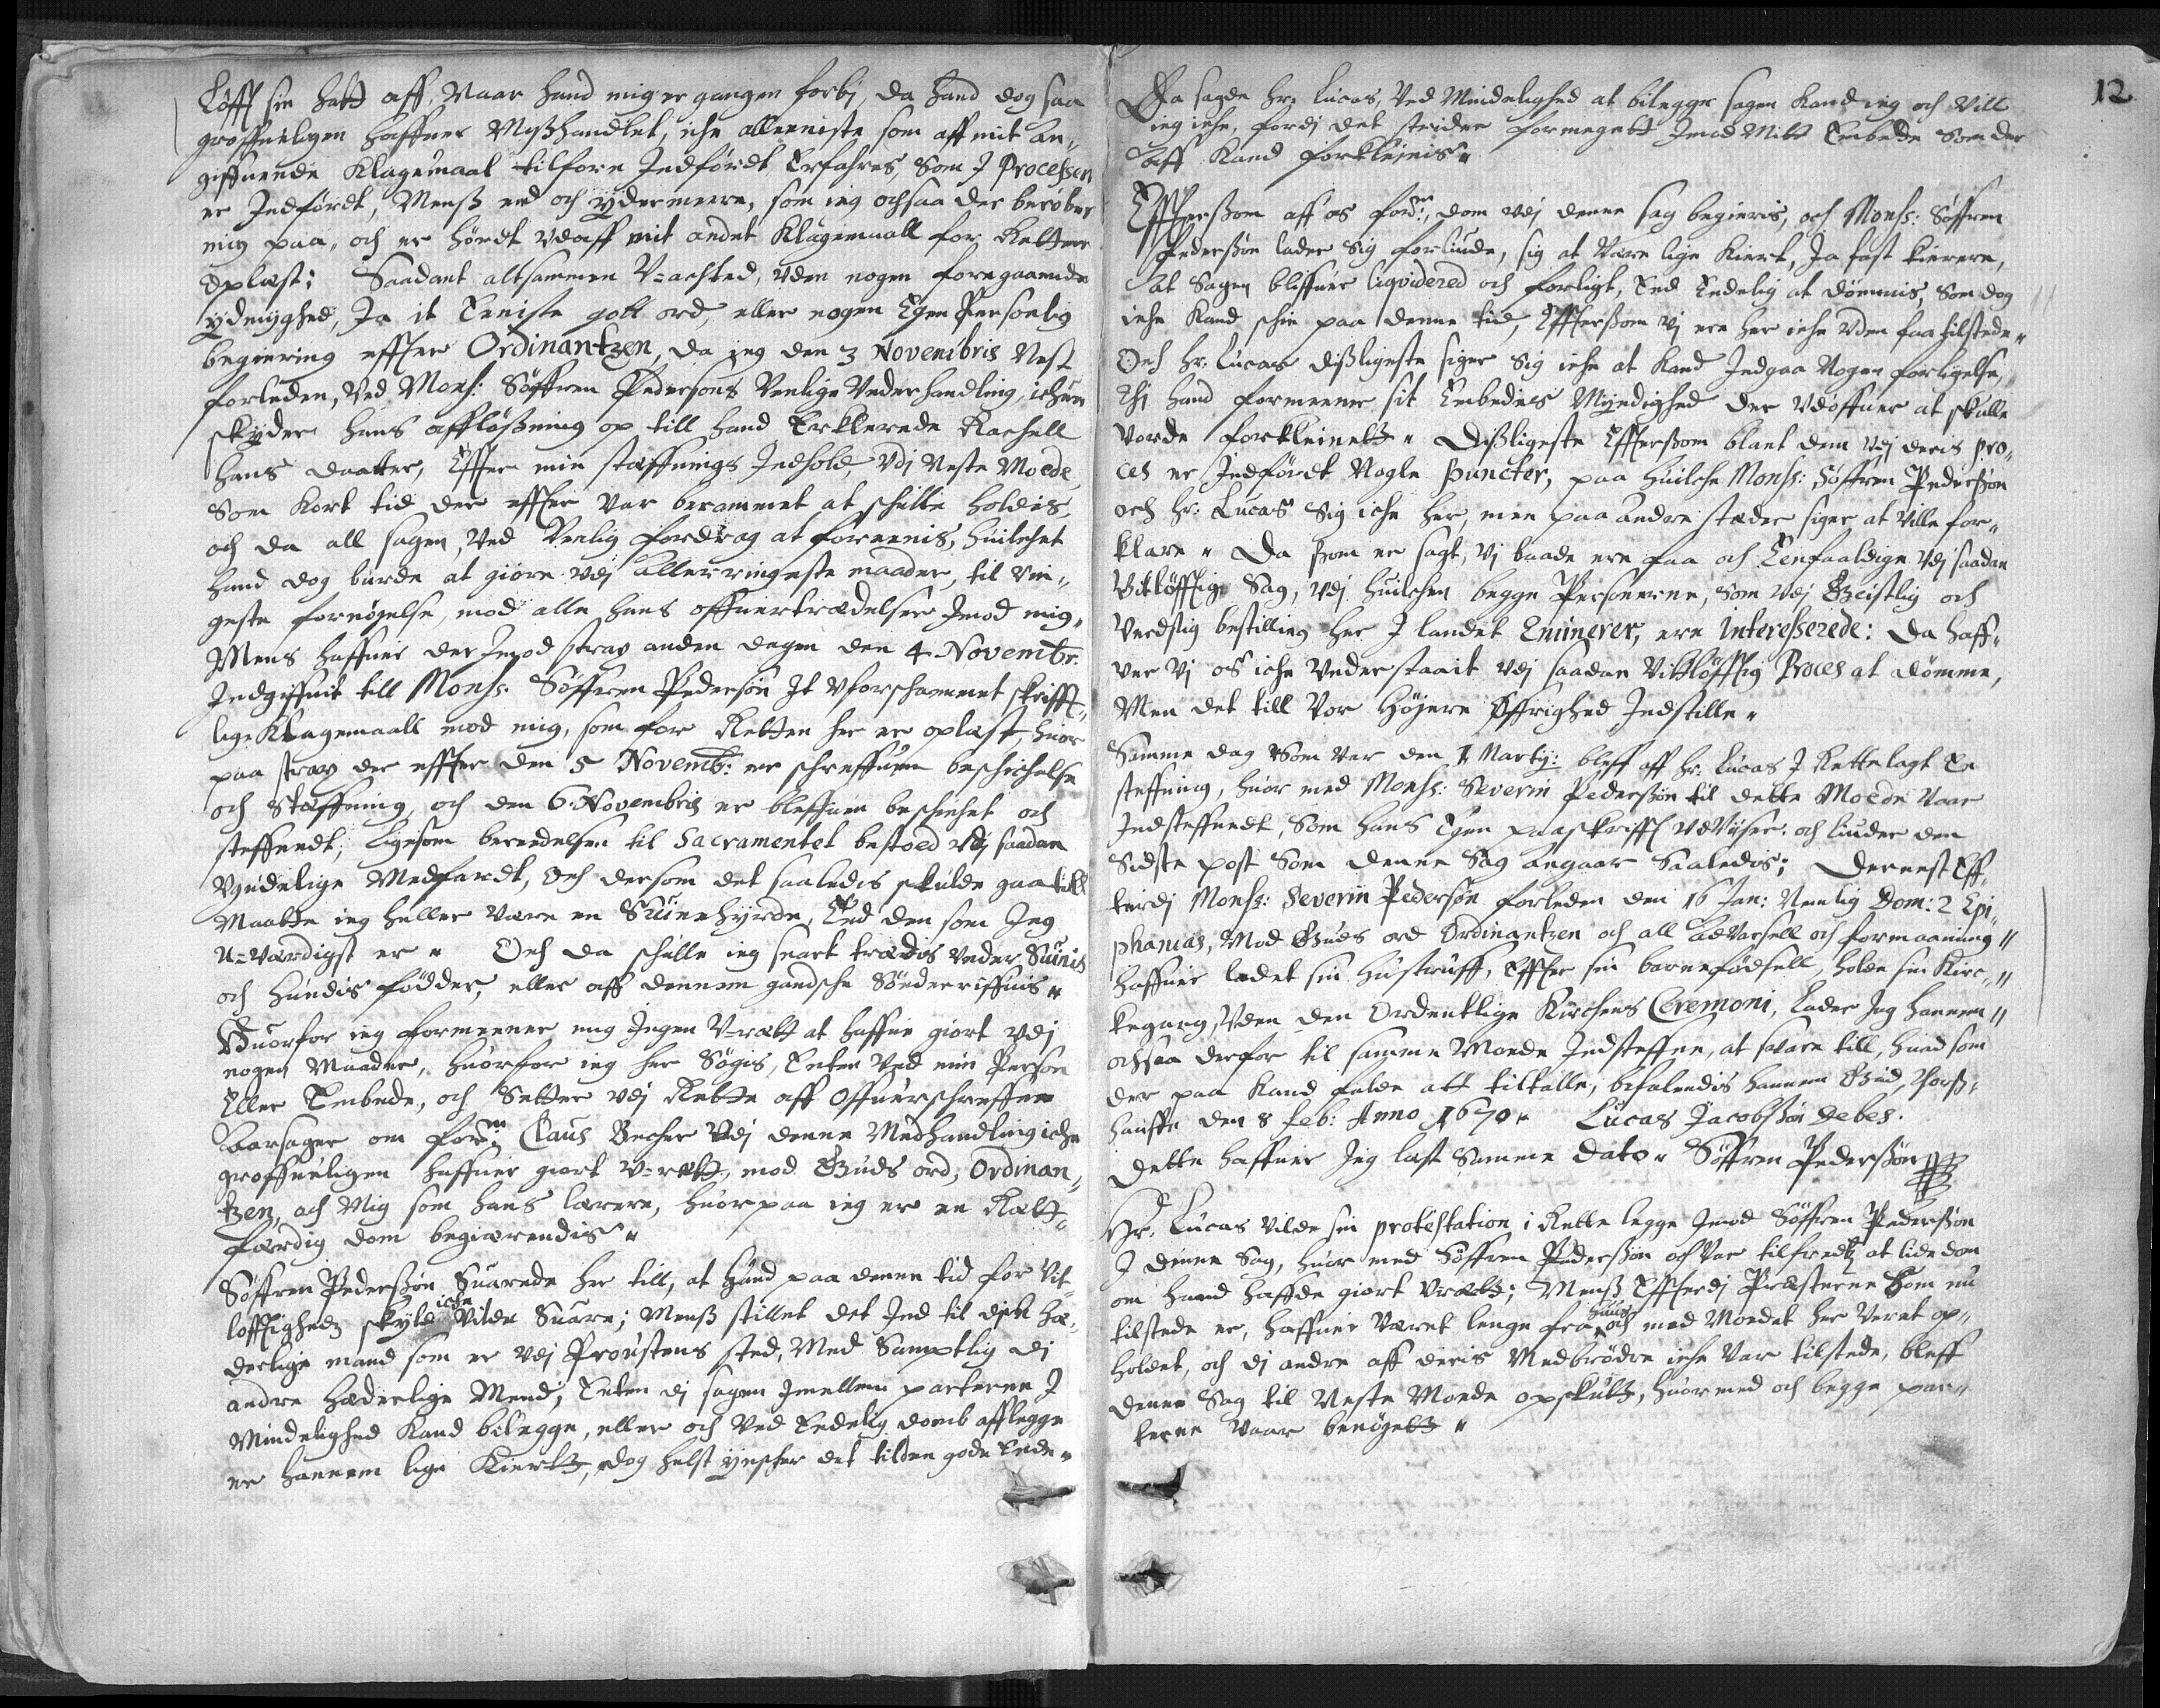 Løfft sin hatt aff, Naar hand mig er gangen forbj, da hand dog saa
groffueligen haffuer Mißhandlet, iche alleeniste som aff mit an-
giffuende Klagemaal tilforn Indførdt, Erfahres, Som J Processen
er Indførdt, Menß end och ydermeere, som ieg ochsaa der beraaber
mig paa, och er hørdt vdaff mit andet Klagemaall for Retten
Oplæst; Saadant altsammen V-achted, vden nogen foregaaende
ydmyghed, Ja it Eeniste gott ord, eller nogen Egen Personlig
begiering effter Ordinantzen, da ieg den 3 Novembris Nest
forleden, Ved Monß: Søffren Pedersøns Venlige Vnderhandling, ichun
skyder hans affløßning op till hand Erklerede Rachell
hans daatter, Effter min stæffnings Indhold, vdj Neste Moede
Som kort tid der effter var berammet at schulle holdis,
och da all sagen, Ved Venlig fordrag at foreenis, huilchet
hand dog burde at giøre vdj allerringeste maader, til rin-
geste fornøjelse, mod alle hans offuertrædelser Imod mig,
Mens haffuer der Imod strax anden dagen den 4 Novembr:
Indgiffuit till Monß: Søffren Pedersøn It Vforschammet skrifft-
lige Klagemaall mod mig, som for Retten her er oplæst, huor
paa strax der effter den 5 Novemb: er schreffuen beschichelse
och Stæffning, och den 6 Novembris er bleffuen beschichet och
steffnedt, ligesom bereedelsen til Sacramentet bestoed vdj saadan
Vyndelige Medfardt, Och dersom det saaledis skulde gaa till
Maatte ieg heller være en Suinehyrde, End den som Jeg
u-værdigst er " Och da schulle ieg snart trædis vnder Suinis
och hundis fødder, eller aff dennem gandsche Sønderriffuis "
Huorfor ieg formeener mig Ingen V-rætt at haffue giort vdj
nogen Maader, huorfor ieg her Søgis, Enten Ved min Person
Eller Embede, och Setter vdj Rette aff Offuerschreffne
Aarsager om forn: Claus Becher vdj denne Medhandling iche
groffueligen haffuer giort V-rett, mod Guds ord, Ordinan-
tzen, och Mig som hans lærere, huorpaa ieg er en Rætt-
færdig dom begiærendis "
Søffren Pederßøn Suarede her till, at hand paa denne tid for Vit-
løfftighedz skyld iche Vilde Suare; Menß stillet det Ind til den hæ-
derlige mand som er vdj Proustens sted, Med Samptlig dj
andre hæderlige Mend, Enten dj sagen Imellem parterne J
Mindelighed Kand bilegge, eller och Ved Endelig domb afflegge
er hannem lige Kiertt, dog helst ynscher det til den gode Ende "
12
Da sagde hr: Lucas, Ved Mindelighed at bilegge sagen Kand ieg och Vill
ieg iche, fordj det strider formeget Imod Mitt Embede Som der
aff Kand forkleinis "
Effterßom aff os forn: dom vdj denne sag begieris, och Monß: Søffren
Pederßøn lader sig forliude, sig at Være lige Kiert, Ja fast kierere,
at Sagen bliffuer liqvidered och forligt, End Endelig at dømmis, Som dog
iche Kand schie paa denne tid, Effterßom Vj ere her iche vden faa tilstede "
Och hr: Lucas dißligeste siger Sig iche at Kand Indgaa Nogen forligelse,
Thj hand formeener sit Embedes Myndighed der vdoffuer at skulle
Vorde forkleinett " Dißligeste Effterßom blant dem vdj deris pro-
ces er Indførdt Nogle puncter, paa huilche Monß: Søffren Pederßøn
och hr: Lucas Sig iche her, men paa andre stæder siger at Ville for-
klare " Da som er sagt, Vj baade ere faa och Eenfaaldige vdj saadan
Vitløfftig Sag, vdj huilchen begge Personerne, Som vdj Geistlig och
Verdslig bestilling her J landet Eminerer, ere Interesserede: Da haff-
uer Vj os iche Vnderstaait vdj saadan Vittløfftig Proces at dømme,
Men det till Vor Højere Øffrighed Indstille "
Samme dag Som Var den 1 Martij: bleff aff hr: Lucas J Rette lagt En
steffning, huor med Monß: Severin Pederßøn til dette Moede Vaar
Indsteffnedt, Som hans Egen paaskrifft vdViser, och liuder den
Sidste post Som denne Sag angaar Saaledis; Dernest Eff-
terdj Monß: Severin Pedersøn forleden den 16 Jan: Nemlig Dom: 2 Epi-
phanias, Mod Guds ord Ordinantzen och all adVarsell och formaaning "
haffuer ladet sin hustruff, Effter sin barnefødsell, holde sin Kirc- "
kegang, Vden den Ordentlige Kirchens Ceremoni, lader Jeg hannem "
ochsaa derfor til samme Moede Indsteffne, at svare till, huad som
der paa Kand falde att tiltalle, befalendis hannem Gud, Thorß-
haffn den 8 feb: Anno 1670 " Lucas Jacobßøn Debes.
Dette haffuer Jeg læst Samme dato " Søffren Pederßøn
Hr. Lucas Vilde sin protestation i Rette legge Imod Søffren Pederßøn
J denne Sag, huor med Søffren Pederßøn och Var tilfredtz at lide dom
om hand haffde giort Vrætt; Menß Effterdj Præsterne som nu
tilstede er, haffuer Været lenge fra huus och med Moedet her Veret op-
holdet, och dj andre aff deris Medbrødre iche Var tilstede, bleff
denne Sag til Neste Moede opskutt, huormed och begge par-
terne Vaar benøgett "